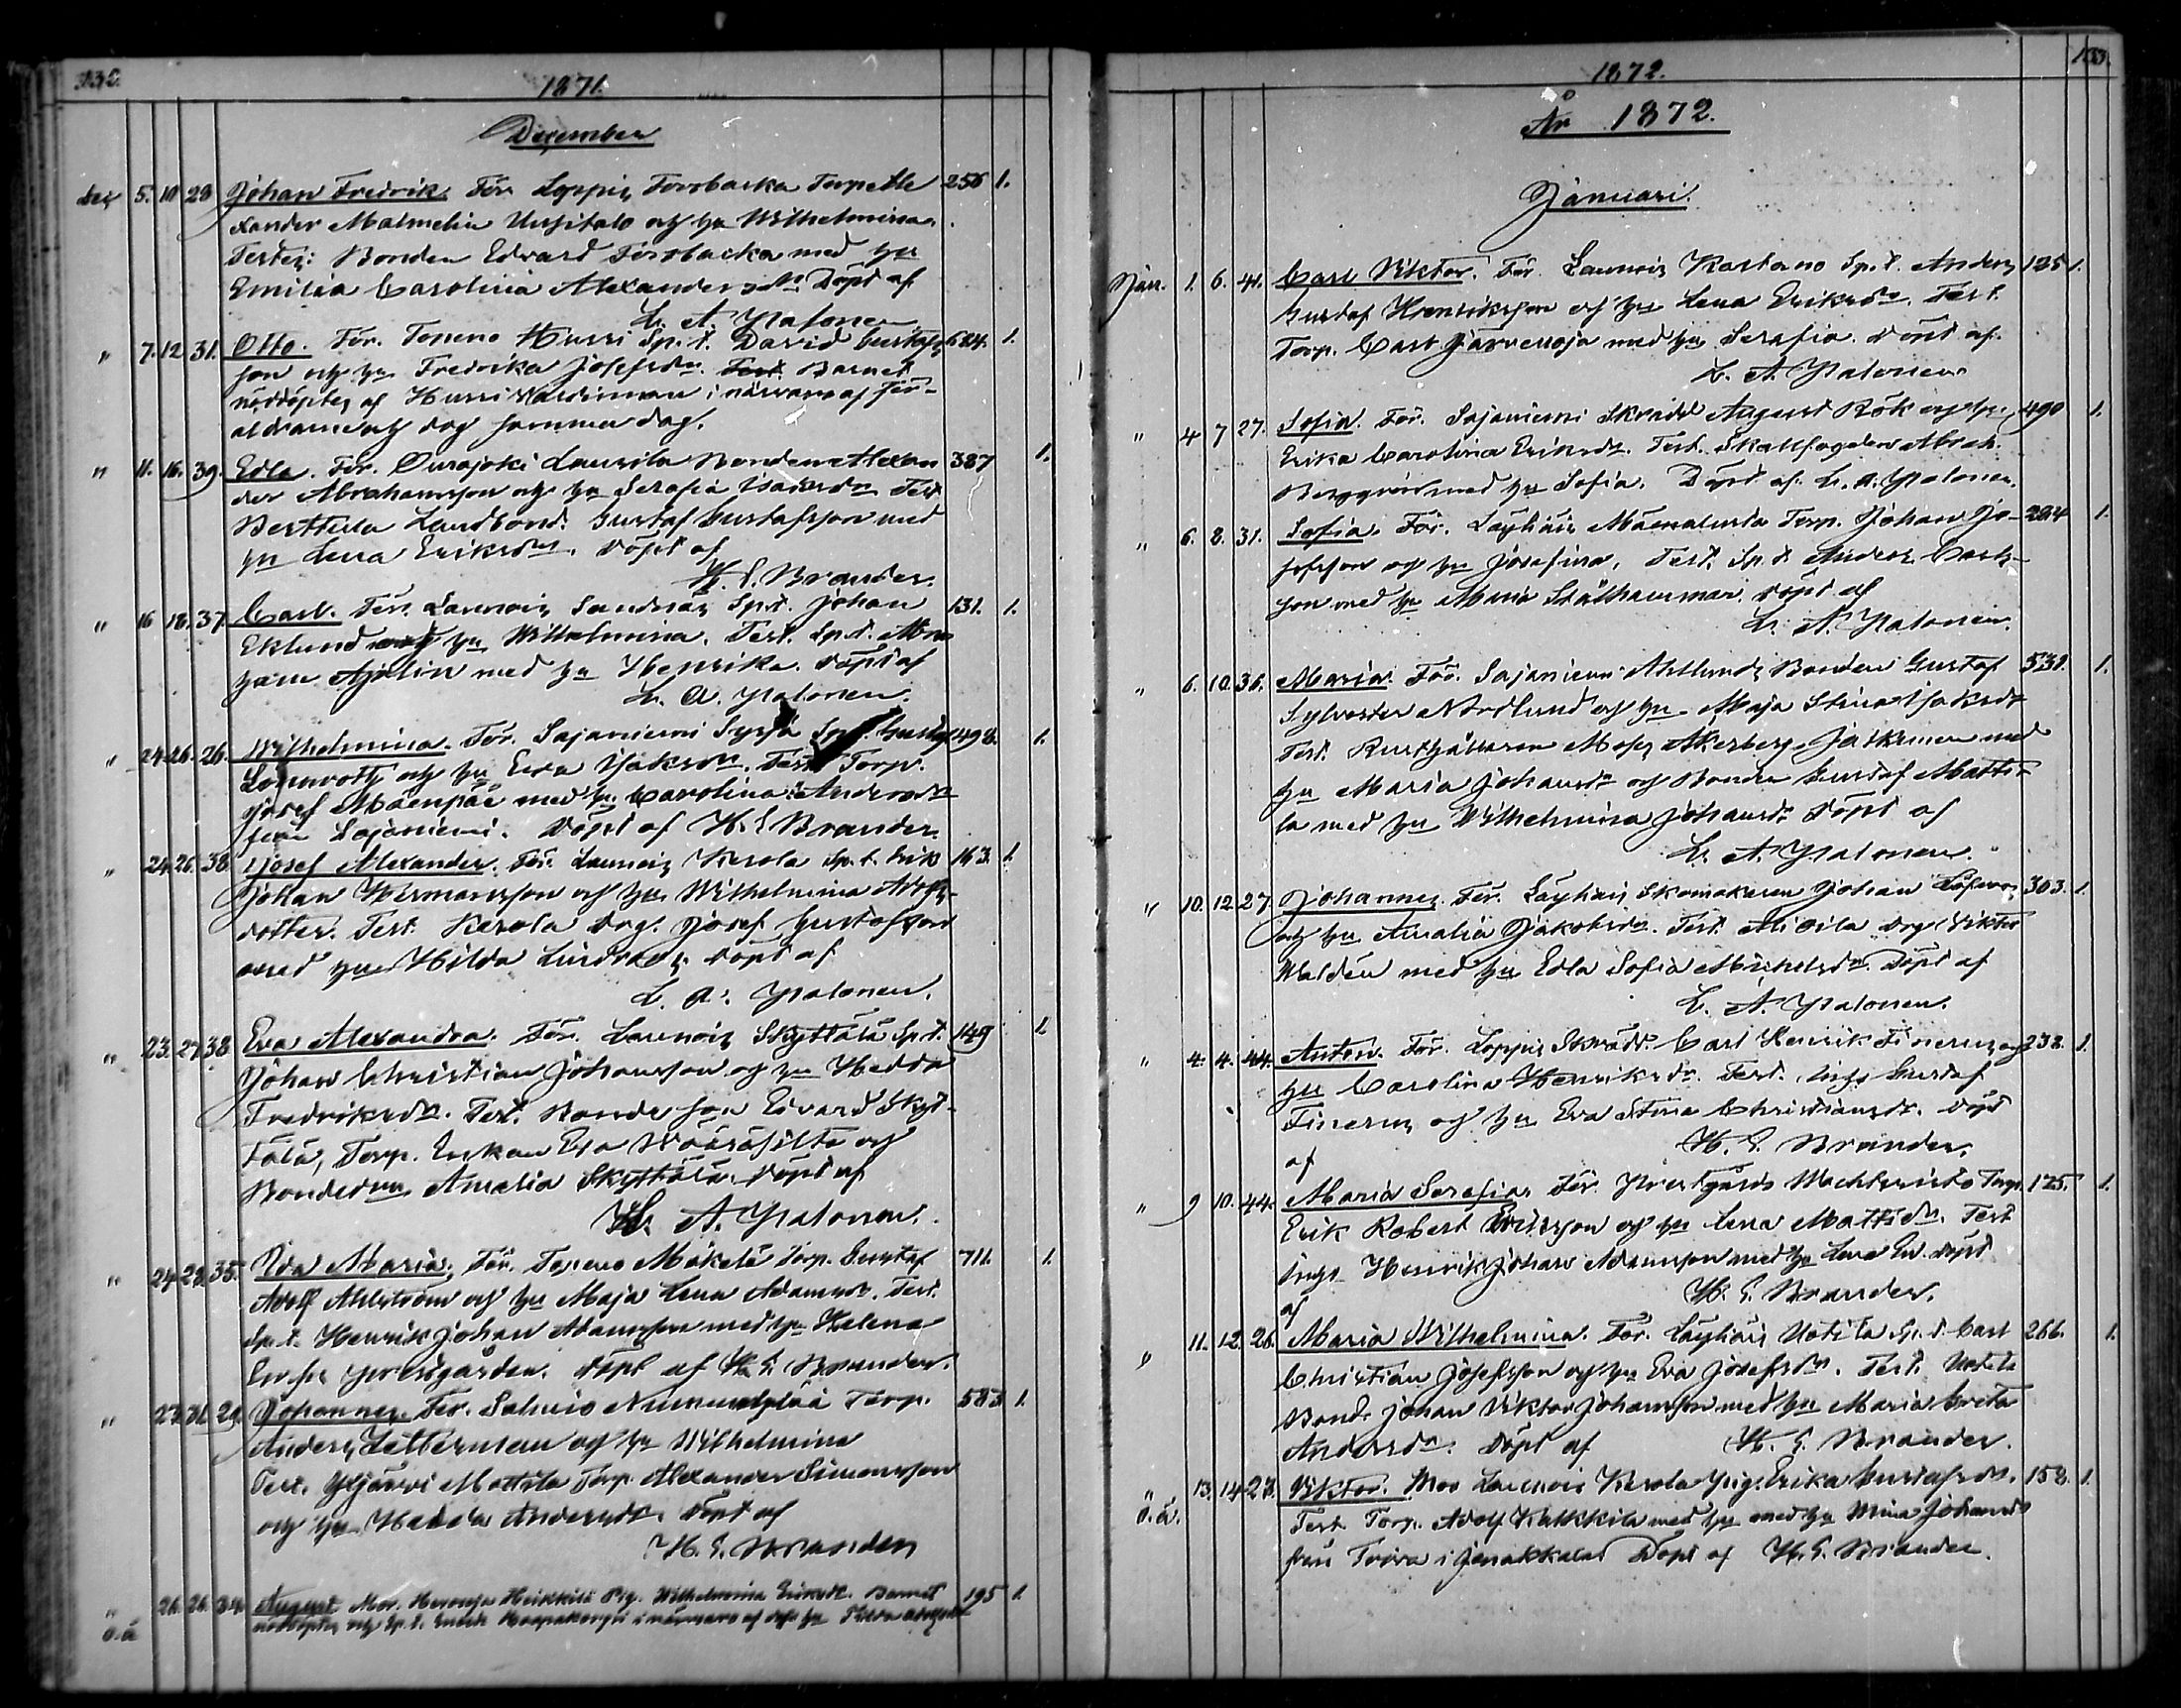 132.
1871.
December
Dec 5. 10 29 Johan Fredrik. För. Loppis, Forsbacka Torp. Ale 256 1.
xander Malmelin Uusitalo och hu Wilhelmina.
Testes: Bonden Edvard Forsbacka med hu
Emilia Carolina Alexandersdr Döpt af
L. A. Palonen
" 7. 12 31. Otto. För. Topeno Hursi Sp.t. David Gustafs 624. 1.
son och hu Fredrika Josefsdr. Test. Barnet
nöddöptes af Hursi i närvaro af för-
äldrarne och dog samma dag.
" 11. 16. 39. Edla. För. Ourajoki Laurila Bonden Alexan 387 1.
der Abrahamsson och hu Serafia Isaksdr Test
Perttula Landbond. Gustaf Gustafsson med
hu Lena Eriksdr. Döpt af
H. E. Brander.
" 16 18. 37 Carl. För. Launois Sandnäs Sp.t. Johan 131. 1.
Eklund och hu Wilhelmina. Test. Sp.t. Abra
ham Ajalin med hu Henrika. Döpt af
L. A. Palonen.
" 24 26. 26. Wilhelmina. För. Sajaniemi Syrjä Gustaf 498. 1.
och hu Eva Isaksdr. Test Torp.
Josef Mäenpää med hu Carolina Andersdr
från Sajaniemi. Döpt af H. E. Brander
" 24. 26. 38. Josef Alexander. För. Launois Kerola Sp.t. Erik 163. 1.
Johan Hermansson och hu Wilhelmina Adolfs-
dotter. Test. Kerola Drg. Josef Gustafsson
med hu Hilda Döpt af
L. A. Palonen.
" 23. 27. 38 Eva Alexandra. För. Launois Skyttälä Sp.t. 149 1.
Johan Christian Johansson och hu Hedda
Fredriksdr. Test. Bonde son Edvard Skyt-
tälä, Torp. Enkan Eva och
Bondedr Amalia Skyttälä. Döpt af
L. A. Palonen.
" 24 28. 35. Ida Maria. För. Topeno Mäkelä Torp. Gustaf 711. 1.
Adolf Ahlström och hu Maja Lena Adamsdr. Test.
Sp.t. Henrik Johan Adamsson med hu Helena
från Prestgården. Döpt af H. E. Brander.
" 27. 31. 29. Johannes. För. Salmis Nummenpää Torp. 583 1.
Anders Letterman och hu Wilhelmina
Test. Yljärvi Mattila Torp. Alexander Simonsson
och hu Hedda Andersdr. Döpt af
H. E. Brander
" 26. 26. 34. August Mor. Heikkilä Pig. Wilhelmina Eriksdr. Barnet 195 1.
o.ä. nöddöptes af Sp.t. i närvaro af
1872. 133.
År 1872.
Januari.
Jan. 1. 6. 41. Carl Viktor. För. Launois Kartano Sp.t. Anders 125 1.
Gustaf Henriksson och hu Lena Eriksdr. Test.
Torp. Carl Järvenoja med hu Serafia. Döpt af.
L. A. Palonen.
" 4 7 27. Sofia. För. Sajaniemi Skrädd August Rök och hu 490 1.
Erika Carolina Eriksdr. Test. Skallfogden Abrah.
Bergqvist med hu Sofia. Döpt af. L. A. Palonen.
" 6. 8. 31. Sofia. För. Läyliäis Torp. Johan Jo- 294 1.
sefsson och hu Josefina. Test. Sp.t. Anders Carls-
son med hu Maria Stålhammar. Döpt af
L. A. Palonen.
" 6. 10. 36. Maria. För. Sajaniemi Ahllunds Bonden Gustaf 531. 1.
Sylvester Nordlund och hu Maja Stina Isaksdr
Test. Rusthållaren Moses Åkerberg med
hu Maria Johansdr och Bonden Gustaf Matti-
la med hu Wilhelmina Johansdr Döpt af
L. A. Palonen.
" 10. 12. 27 Johannes. För. Läyliäis Skomakaren Johan 303. 1.
och hu Amalia Jakobsdr. Test. Alitila Drg Viktor
Waldén med hu Edla Sofia Mickelsdr. Döpt af
L. A. Palonen.
" 4. 4. 44. Anton. För. Loppis Skrädd. Carl Henrik Finerus och 232. 1.
hu Carolina Henriksdr. Test. Inhs Gustaf
Finerus och hu Eva Stina Christiansdr. Döpt
af H. E. Brander.
" 9 10. 44. Maria Serafia. För. Prestgårds Torp. 175. 1.
Erik Robert Eriksson och hu Lena Mattsdr. Test
Inhs Henrik Johan Adamsson med hu Lena Döpt
af H. E. Brander.
" 11. 12. 26. Maria Wilhelmina. För. Läyliäis Uotila Sp.t. Carl 266. 1.
Christian Josefsson och hu Eva Josefsdr. Test. Uotila
Bond. Johan Viktor Johansson med hu Maria Greta
Andersdr. Döpt af H. E. Brander.
" 13. 14 23. Viktor. Mor Launois Kerola Pig. Erika Gustafsdr. 158. 1.
o.ä. Test. Torp. Adolf Kukkila med hu med hu Mina Johansdr
från Toiva i Janakkala Döpt af H. E. Brander.